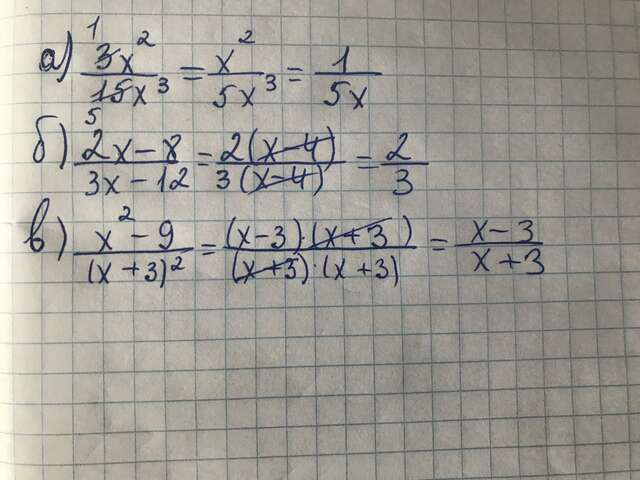 а) 3x²/15x³ = x²/5x³ = 1/5x
б) 2x-8/3x-12 = 2(x-4)/3(x-4) = 2/3
в) x²-9/(x+3)² = (x-3)(x+3)/(x+3)·(x+3) = x-3/x+3